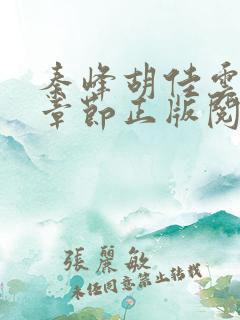 秦峰胡佳雲
章節正版閱
張麗敏
未經同意禁止轉載